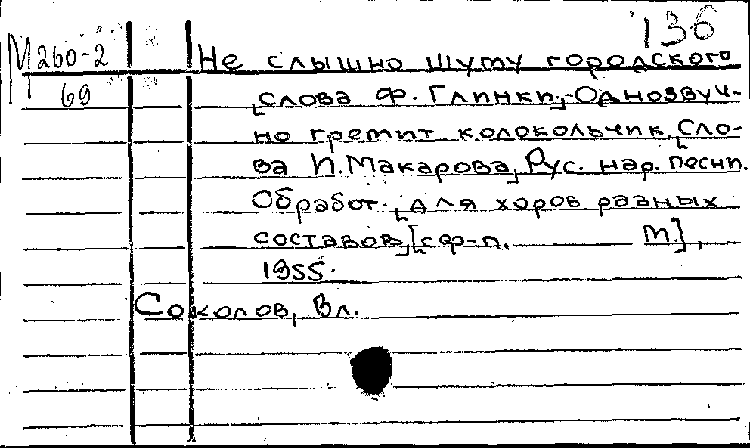 136
М 260-2
69
Не слышно шуму городского
[слова Ф. Глинки].-Однозвуч-
но гремит колокольчик. [Сло-
ва И. Макарова]. Рус. нар. песни.
Обработ. [для хоров разных
составов] [с ф-п. М.],
1955.
Соколов, Вл.